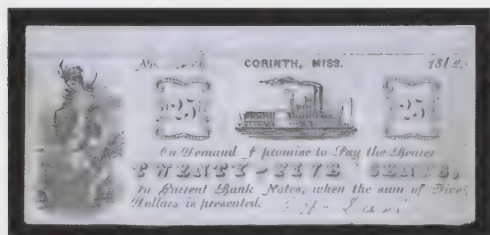 No. CORINTH, MISS. 1862.
25 25
On Demand I promise to Pay the Bearer
TWENTY-FIVE CENTS,
In Current Bank Notes, when the sum of Five
Dollars is presented.